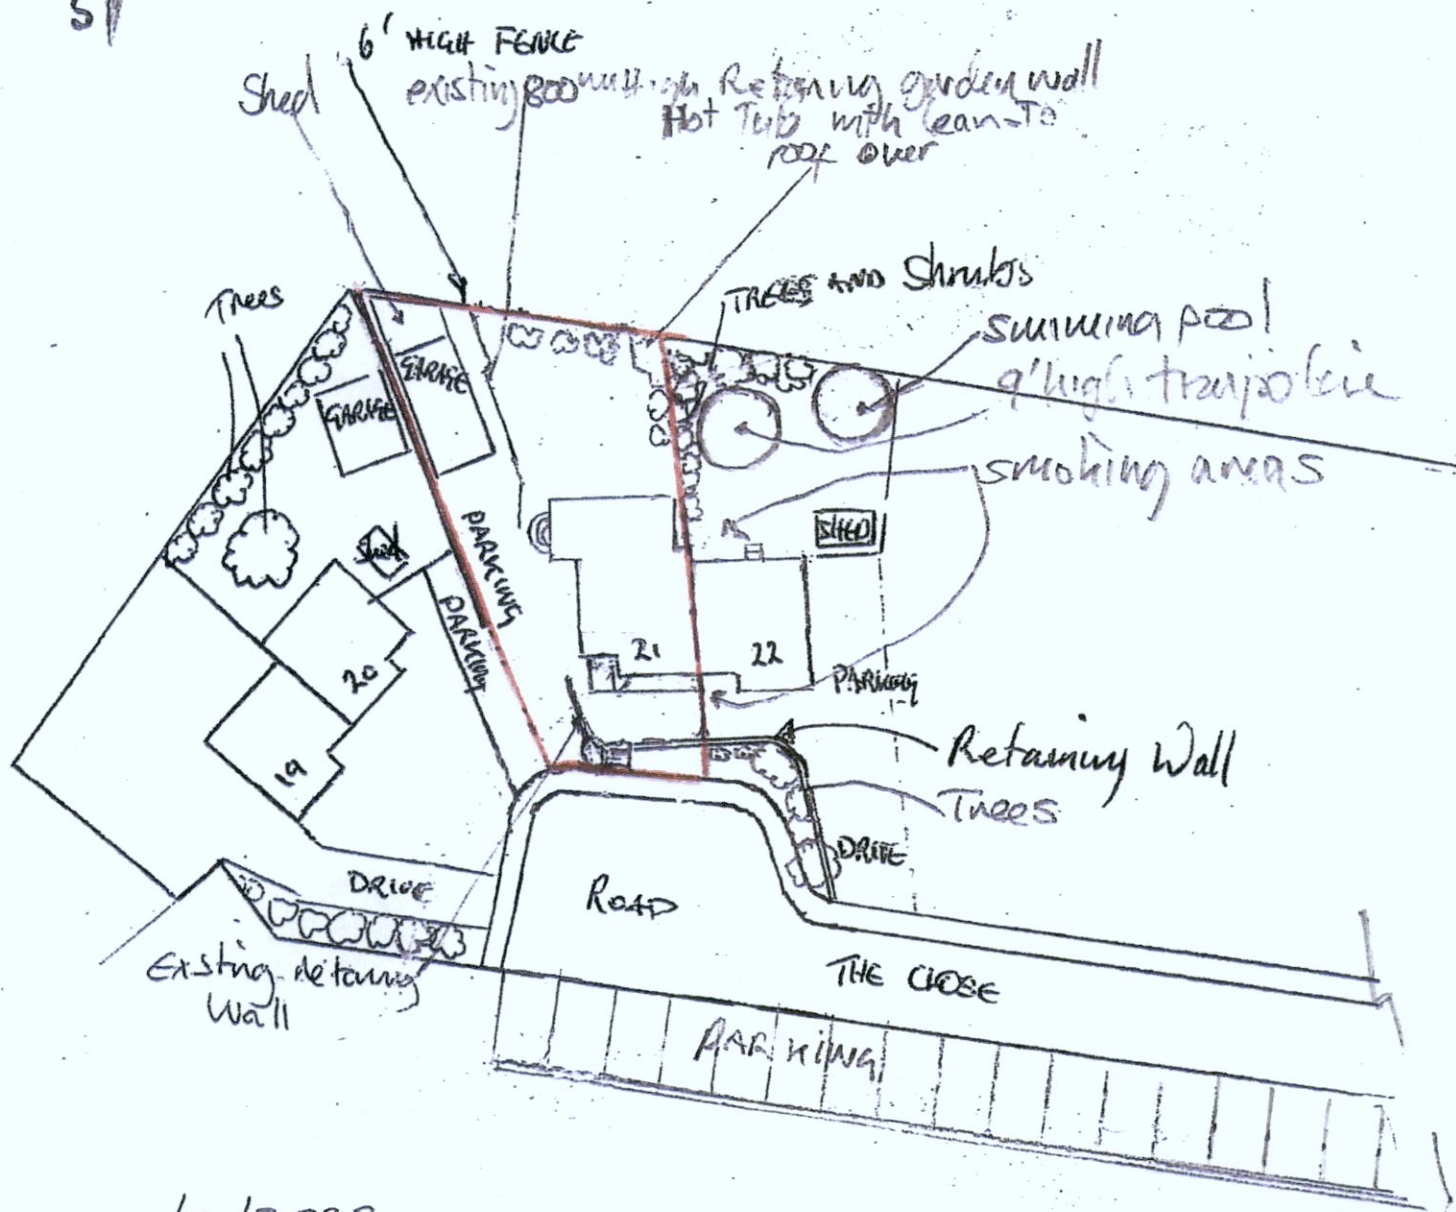 6' HIGH FENCE
Shed
existing 800mm High Retaining garden wall
Hot Tub with Lean-To
roof over
Trees
TREES AND Shrubs
swimming pool
9' high
smoking areas
GARAGE
GARAGE
PARKING
PARKING
Shed
SHED
20
19
21
22
PARKING
Retaining Wall
Trees
DRIVE
DRIVE
ROAD
THE CLOSE
Existing retaining
Wall
PARKING